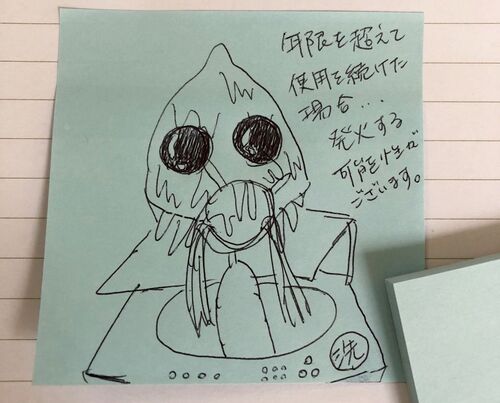 年限を超えて
使用を続けた
場合…
発火する
可能性が
ございます。
洗